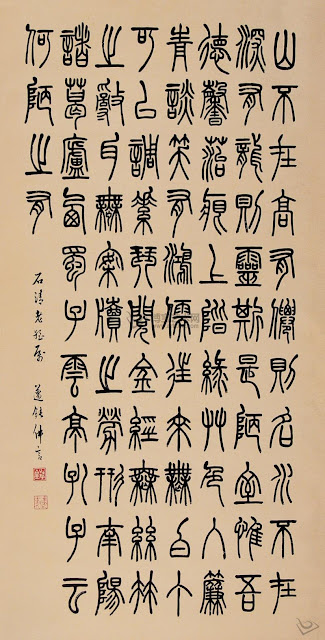 山不在高有僊則名水不在
深有龍則靈斯是陋室惟吾
德馨菭痕上階綠艸色入簾
青談笑有鴻儒往來無白丁
可以調素琴閱金經無絲竹
之亂耳無案牘之勞形南陽
諸葛廬西蜀子雲亭孔子云
何陋之有
石清老姪屬 邁鈍佛言